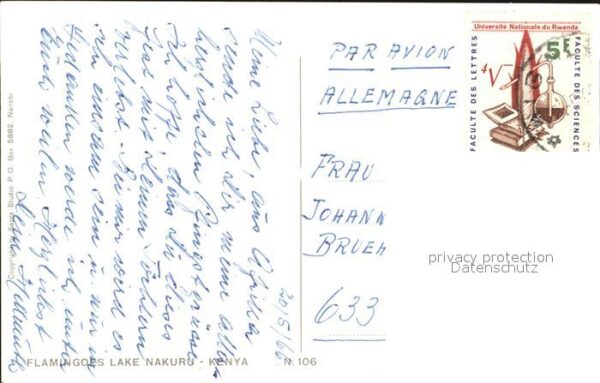 Meine Liebe, aus Afrika
sende ich dir meine aller
herzlichsten Pfingstgrüsse
Ich hoffe, dass du dieses
Fest mit deinen Töchtern
verlebst. Bei mir wird es
sehr einsam sein u. nur in
Gedanken werde ich, unter
Euch weilen. Herzlichst
Dein Hellmuth
20/5/66
Copyright by Sapra Studio P. O. Box 5882, Nairobi
FLAMINGOES LAKE NAKURU - KENYA N. 106
PAR AVION
ALLEMAGNE
FRAU
JOHANN
BRUEH
633
Université Nationale du Rwanda
5F
FACULTÉ DES LETTRES
FACULTÉ DES SCIENCES
privacy protection
Datenschutz